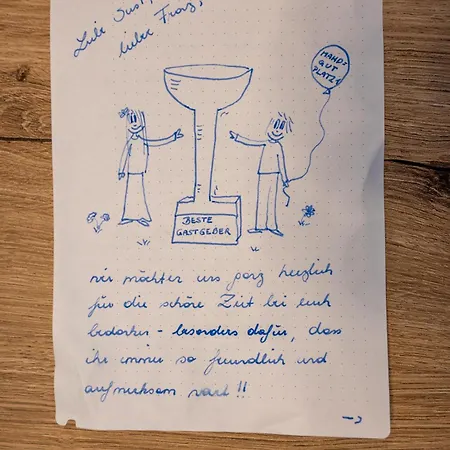 Liebe
lieber Franz,
MAHDS
GUT
PLATZ 1
BESTE
GASTGEBER
wir möchten uns ganz herzlich
für die schöne Zeit bei euch
bedanken - besonders dafür, dass
ihr immer so freundlich und
aufmerksam ward!!